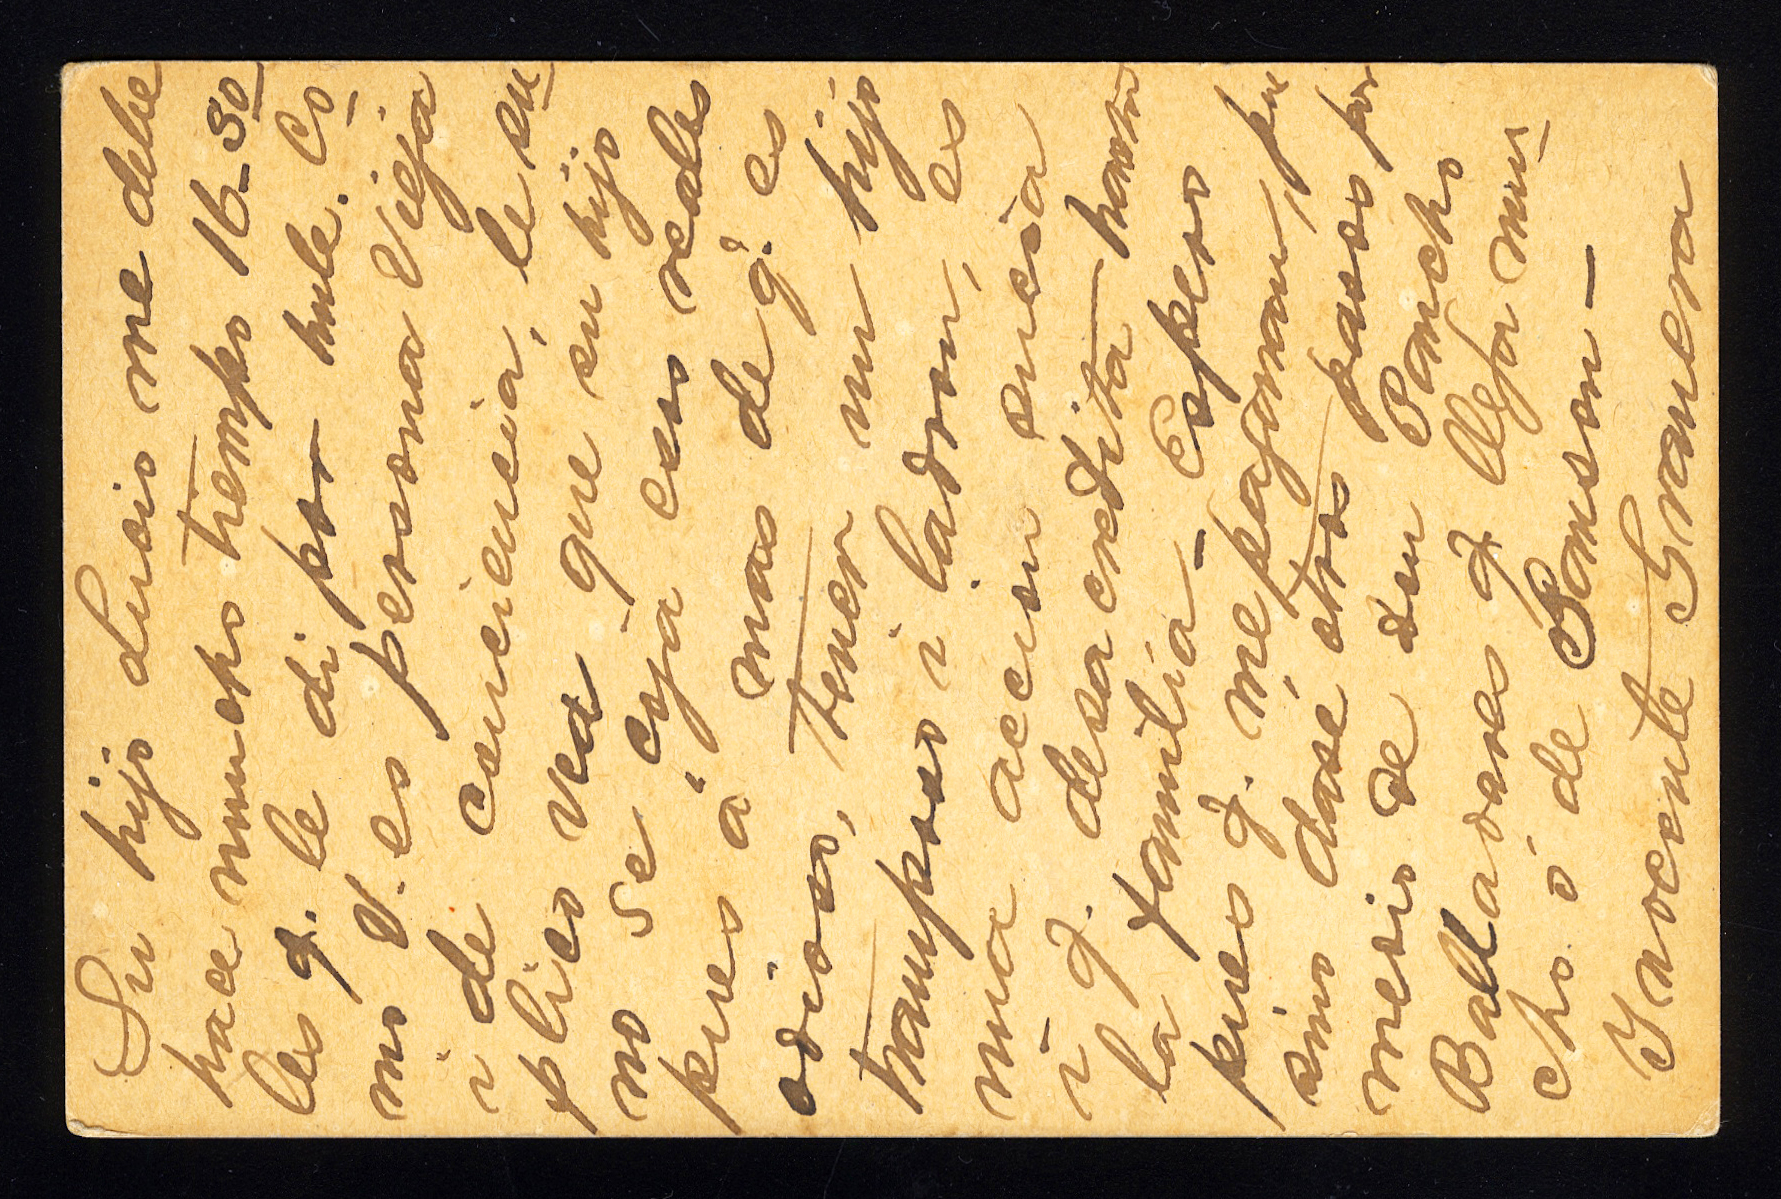 Su hijo Lucio me debe
hace mucho tiempo 16-50
les q. le di por hule. Co-
mo V. es persona vieja
i de conciencia, le su-
plico vea que su hijo
no se coja esos reales
pues á mas de q. es
odioso, tener un hijo
tramposo i ladron, es
una accion sucia
i q. desacredita hasta
la familia - Espero
pues q. me pagaran, pu
sino dase otros pasos por
medio de dn Pancho
Balladares q. llega mu-
cho ó de Ramson -
Inocente Granera